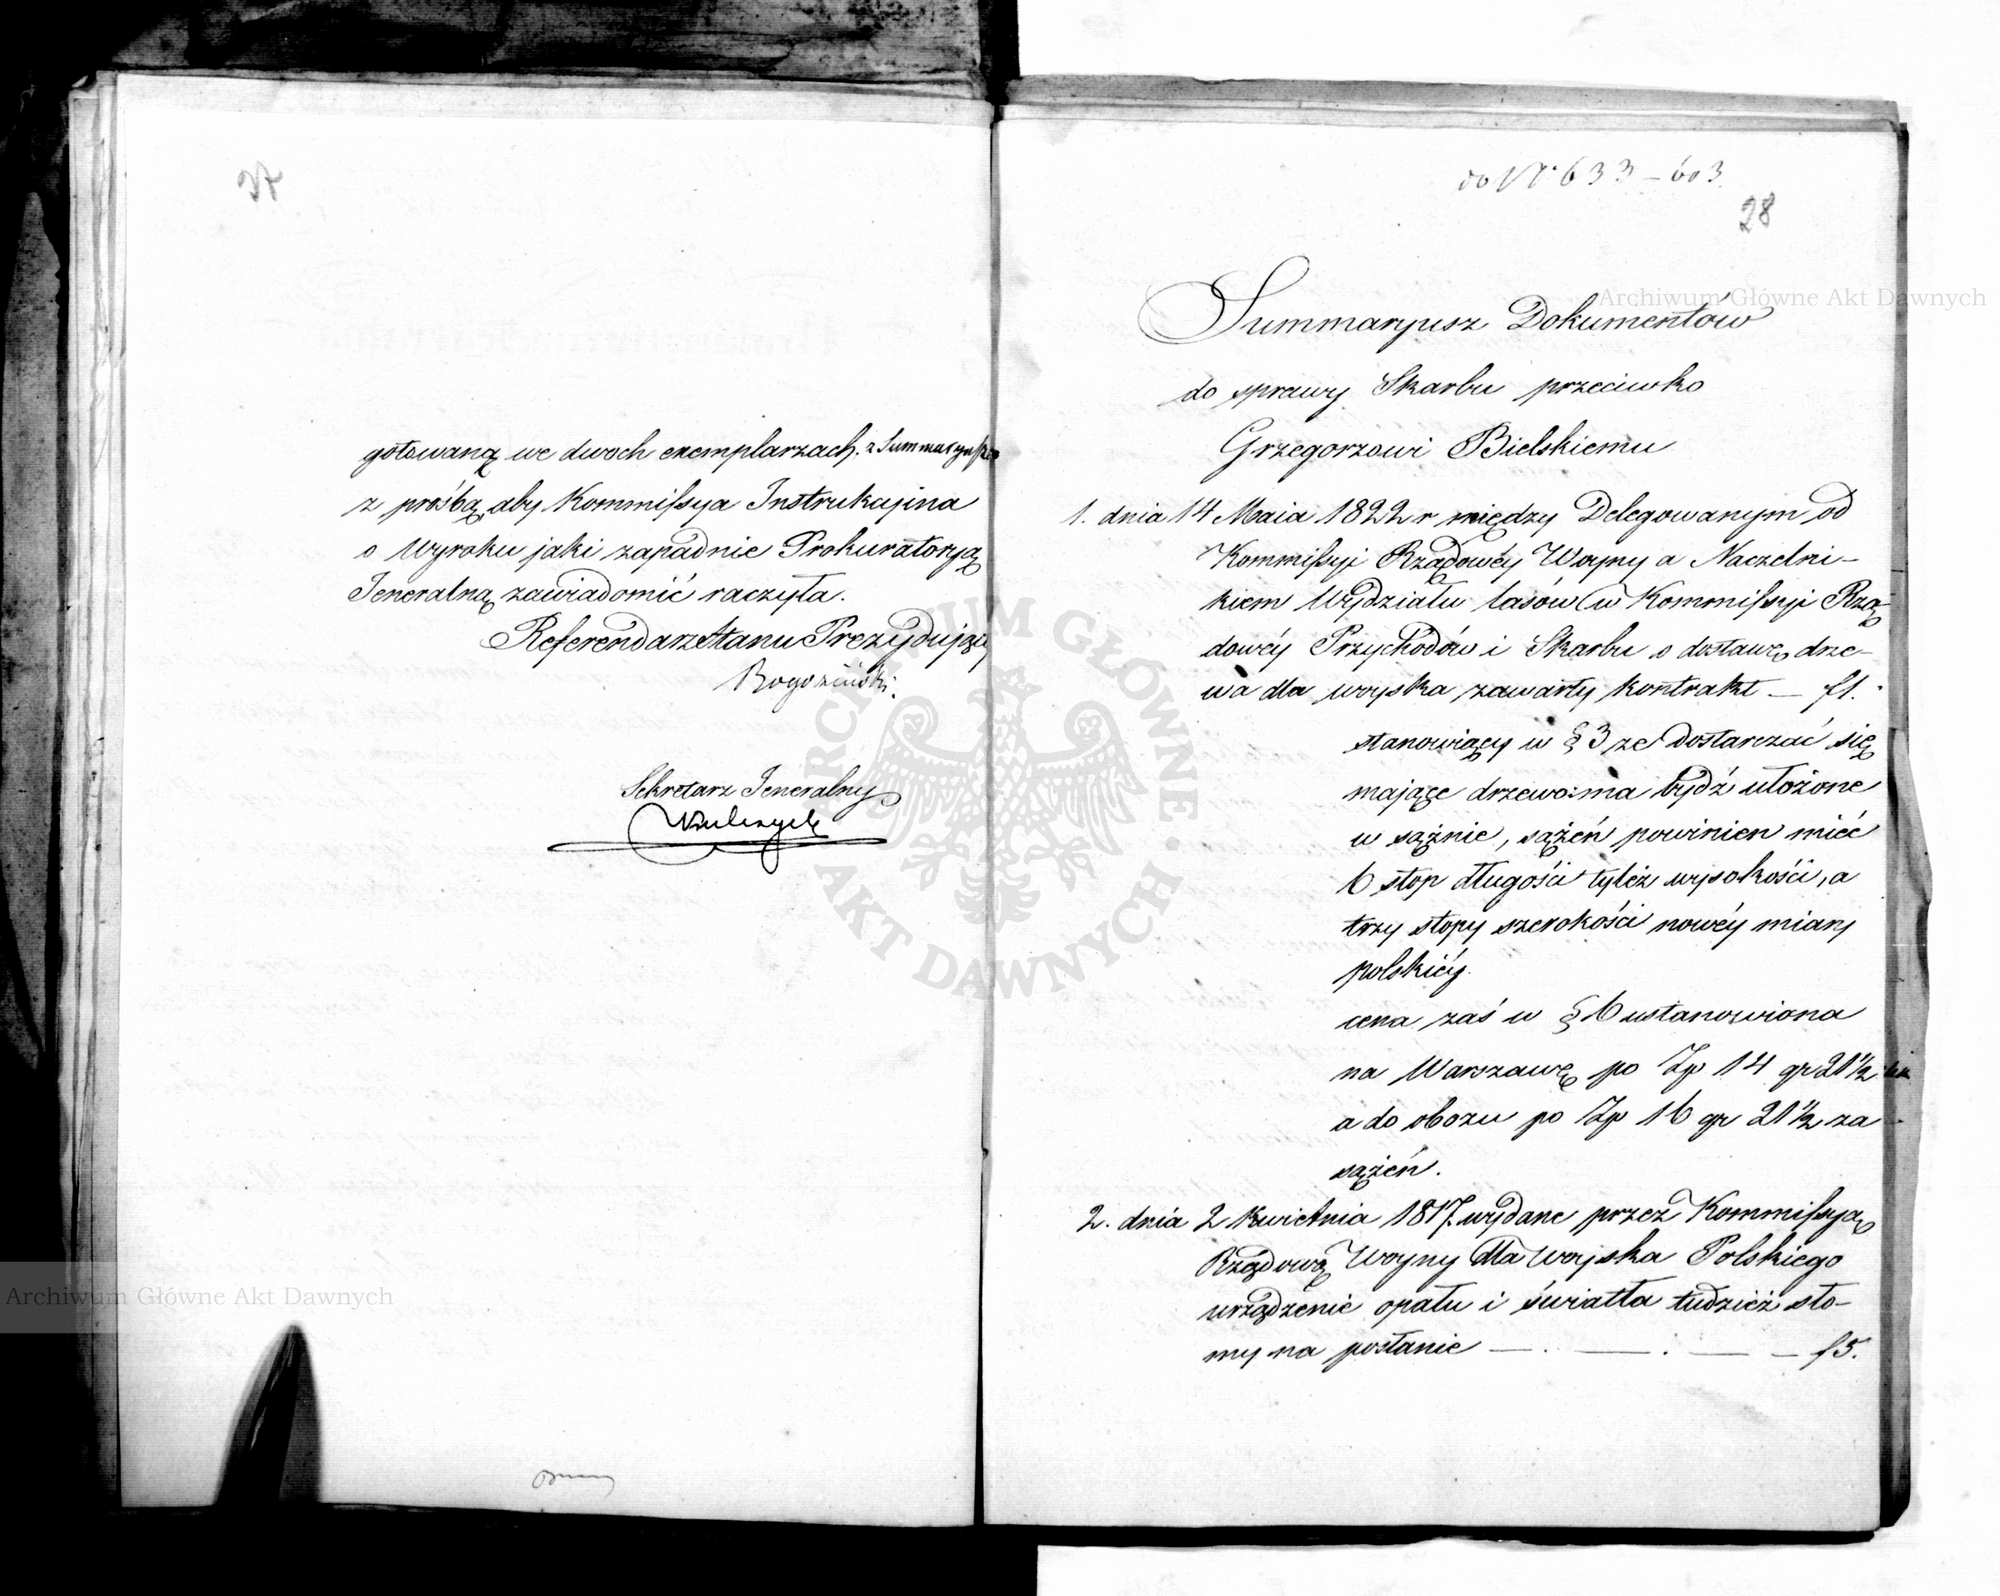 27
gotowaną we dwoch exemplarzach. z Summaryuszem
z prośbą, aby Kommissya Instrukcyjna
o Wyroku jaki zapadnie Prokuratoryą
Jeneralną zawiadomić raczyła.
Referendarz Stanu Prezydujący
Rogoziński.
Sekretarz Jeneralny
do N° 633 – 603
28
Summaryusz Dokumentów
do sprawy Skarbu przeciwko
Grzegorzowi Bielskiemu
1. dnia 14 Maia 1822 r między Delegowanym od
Kommissyi Rządowéy Woyny a Naczelni-
kiem Wydziału lasów w Kommissyi Rzą-
dowéy Przychodów i Skarbu o dostawę drze-
wa dla woyska zawarty kontrakt — f 1.
stanowiący w § 3 że dostarczać się
maiące drzewo ma bydź ułożone
w sążnie, sążeń powinien mieć
6 stop długości tyleż wysokości, a
trzy stopy szerokości nowéy miary
polskiéy.
cena zaś w § 6 ustanowiona
na Warszawę po Zp 14 gr 21½
a do obozu po Zp 16 gr 21½ za
sążeń.
2. dnia 2 Kwietnia 1817. wydane przez Kommissyą
Rządową Woyny dla Woyska Polskiego
urządzenie opału i światła tudzież sło-
my na posłanie — . — : — — f 5.
Archiwum Główne Akt Dawnych
Archiwum Główne Akt Dawnych
ARCHIWUM GŁÓWNE AKT DAWNYCH